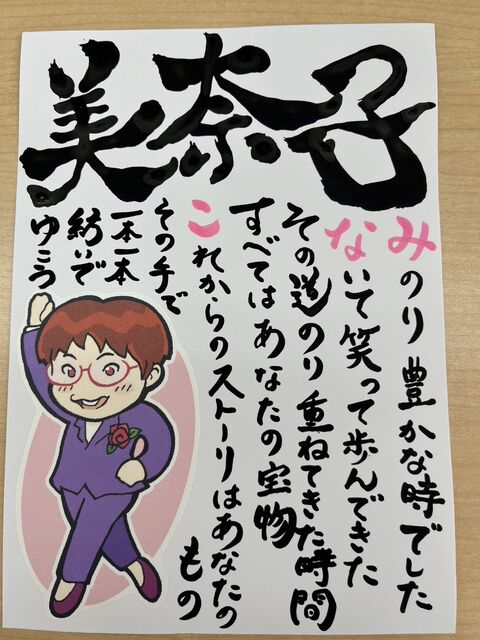 美奈子
みのり豊かな時でした
ないて笑って歩んできた
その道のり重ねてきた時間
すべてはあなたの宝物
これからのストーリはあなたの
もの
その手で
一本一本
紡いで
ゆこう